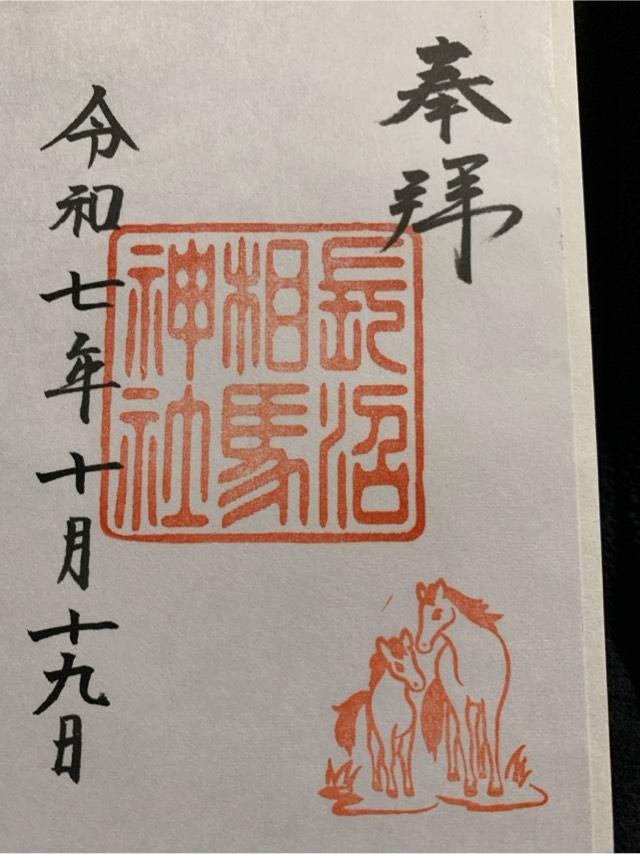 奉拝
長沼
相馬
神社
令和七年十月十九日